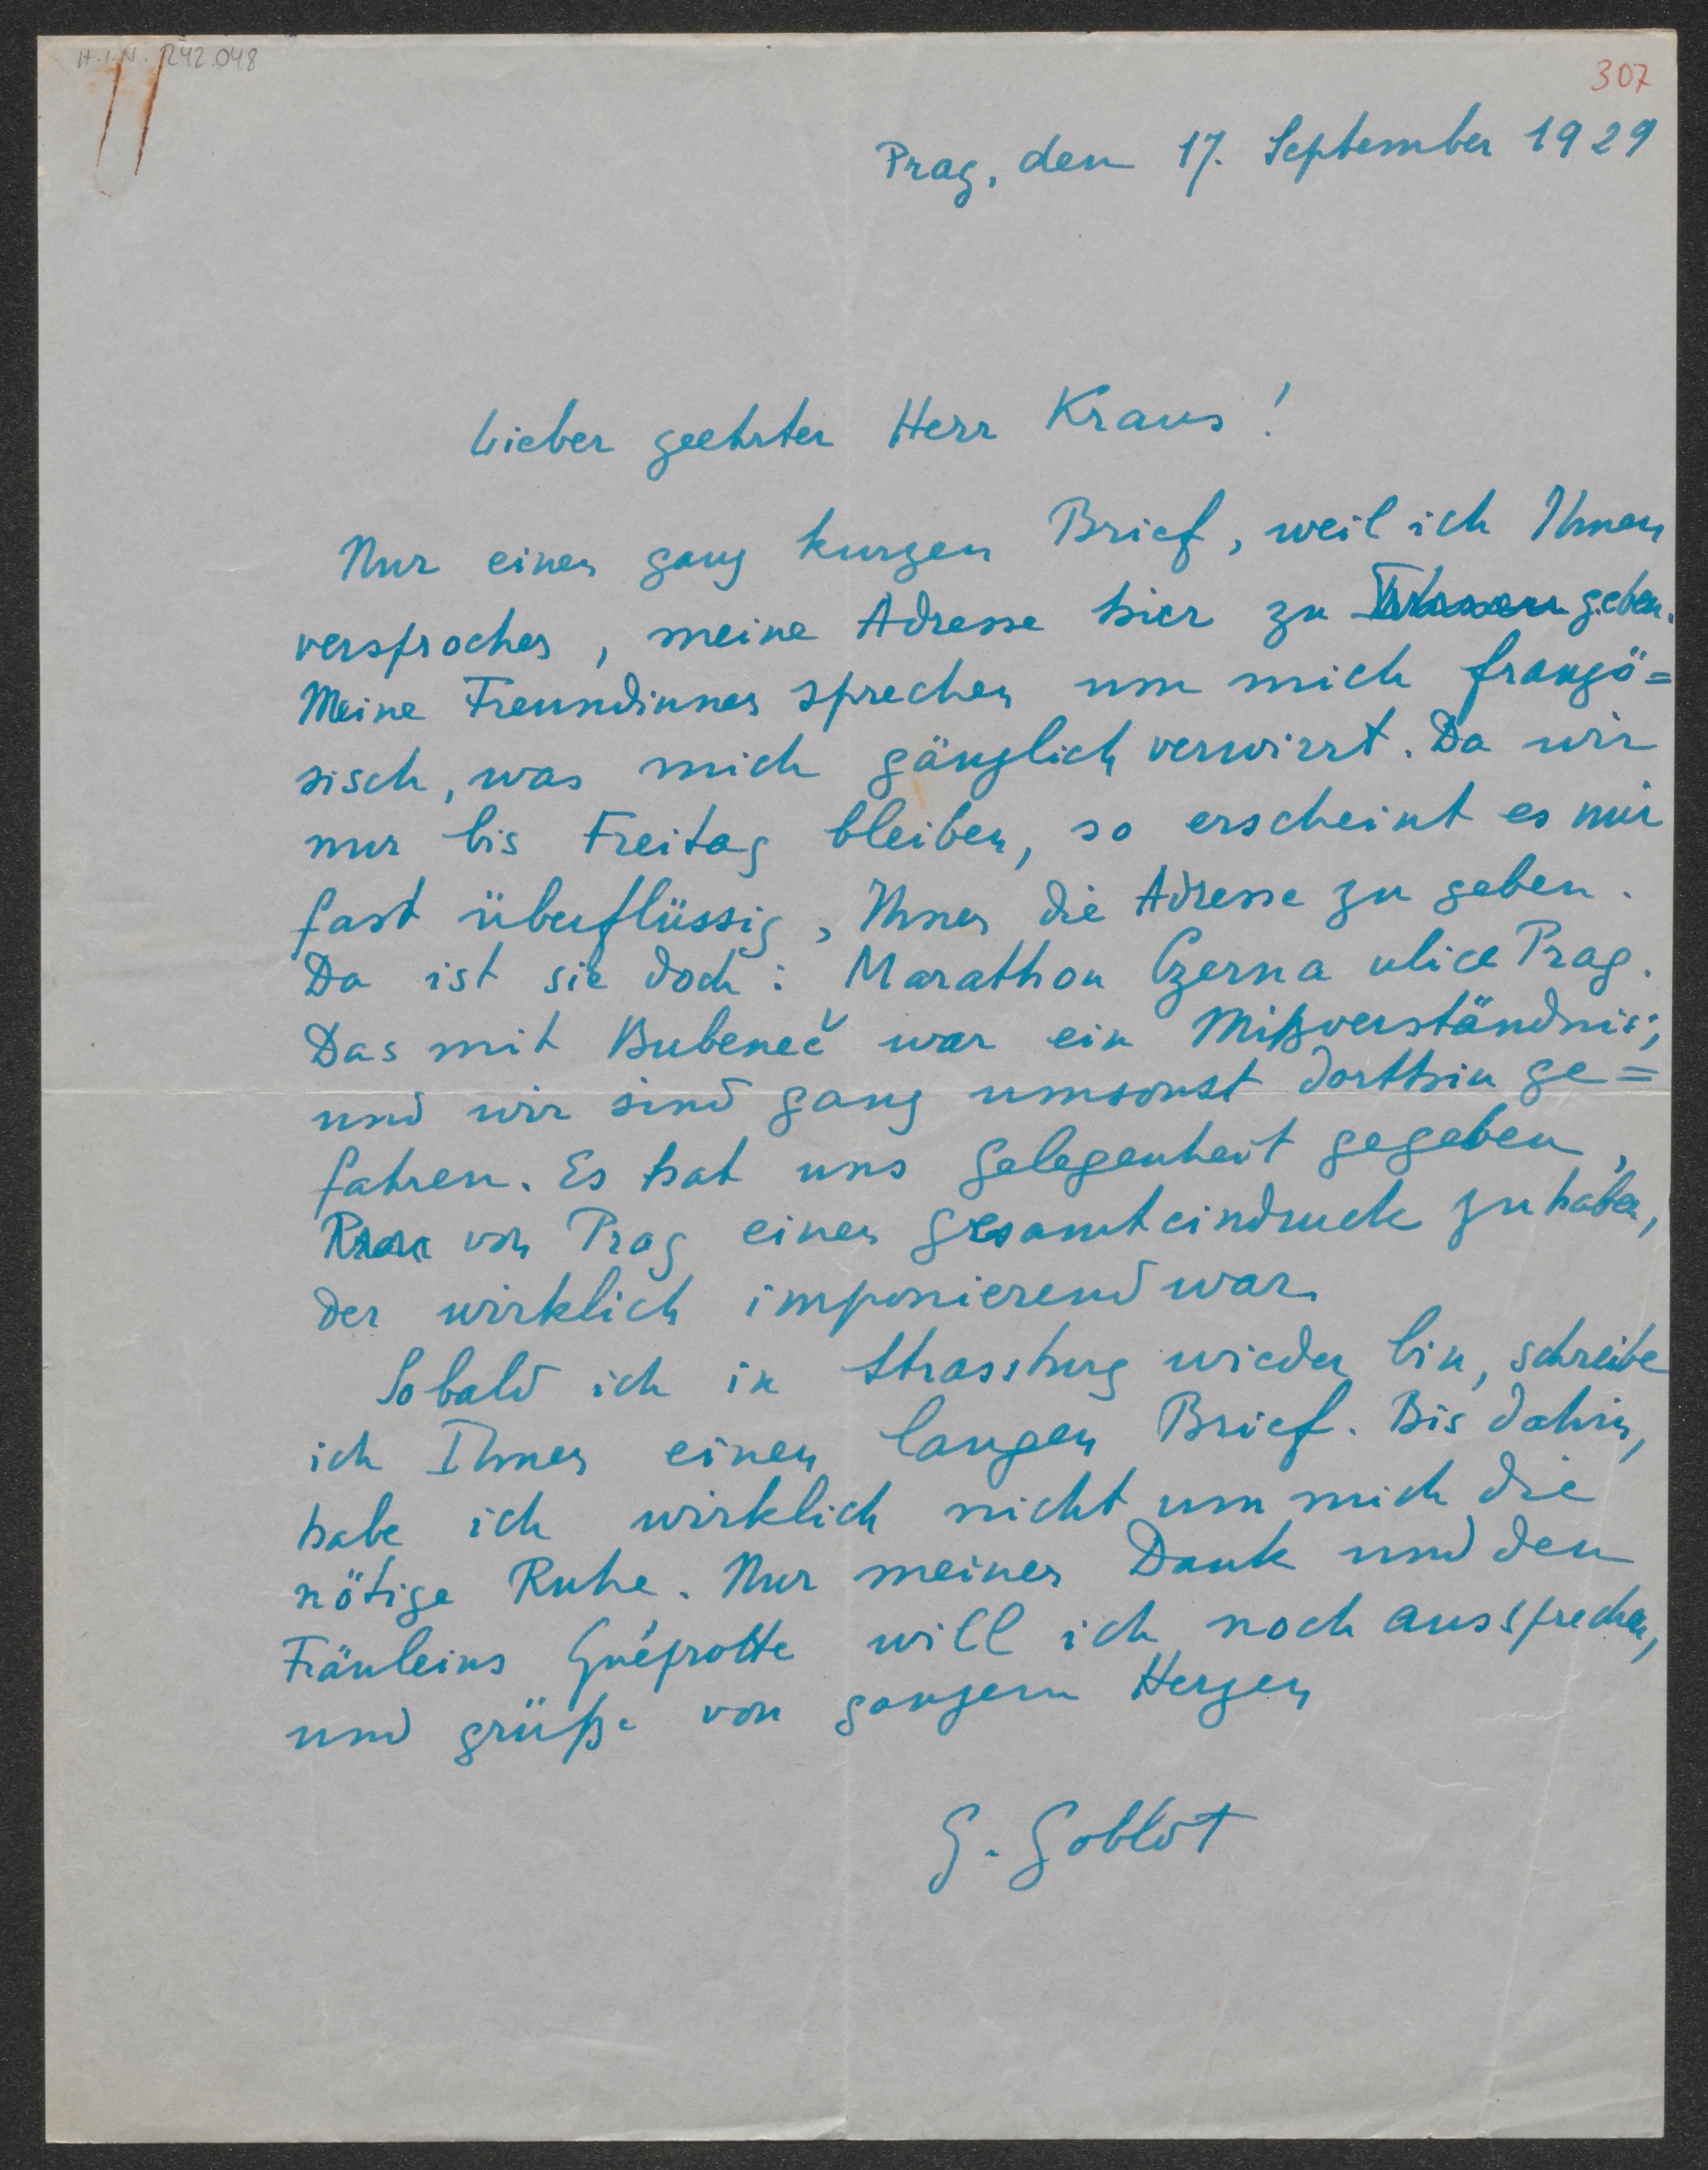 H.I.N. 242.048
307
Prag, den 17. September 1929
Lieber geehrter Herr Kraus!
Nur einen ganz kurzen Brief, weil ich Ihnen
versprochen, meine Adresse hier zu geben.
Meine Freundinnen sprechen um mich franzö=
sisch, was mich gänzlich verwirrt. Da wir
nur bis Freitag bleiben, so erscheint es mir
fast überflüssig, Ihnen die Adresse zu geben.
Da ist sie doch: Marathon Czerna ulice Prag.
Das mit Bubeneč war ein Mißverständnis;
und wir sind ganz umsonst dorthin ge=
fahren. Es hat uns Gelegenheit gegeben,
von Prag einen Gesamteindruck zu haben,
der wirklich imponierend war.
Sobald ich in Strassburg wieder bin, schreibe
ich Ihnen einen langen Brief. Bis dahin,
habe ich wirklich nicht um mich die
nötige Ruhe. Nur meinen Dank und den
Fräuleins Guéprotte will ich noch aussprechen,
und grüße von ganzem Herzen
G. Goblot